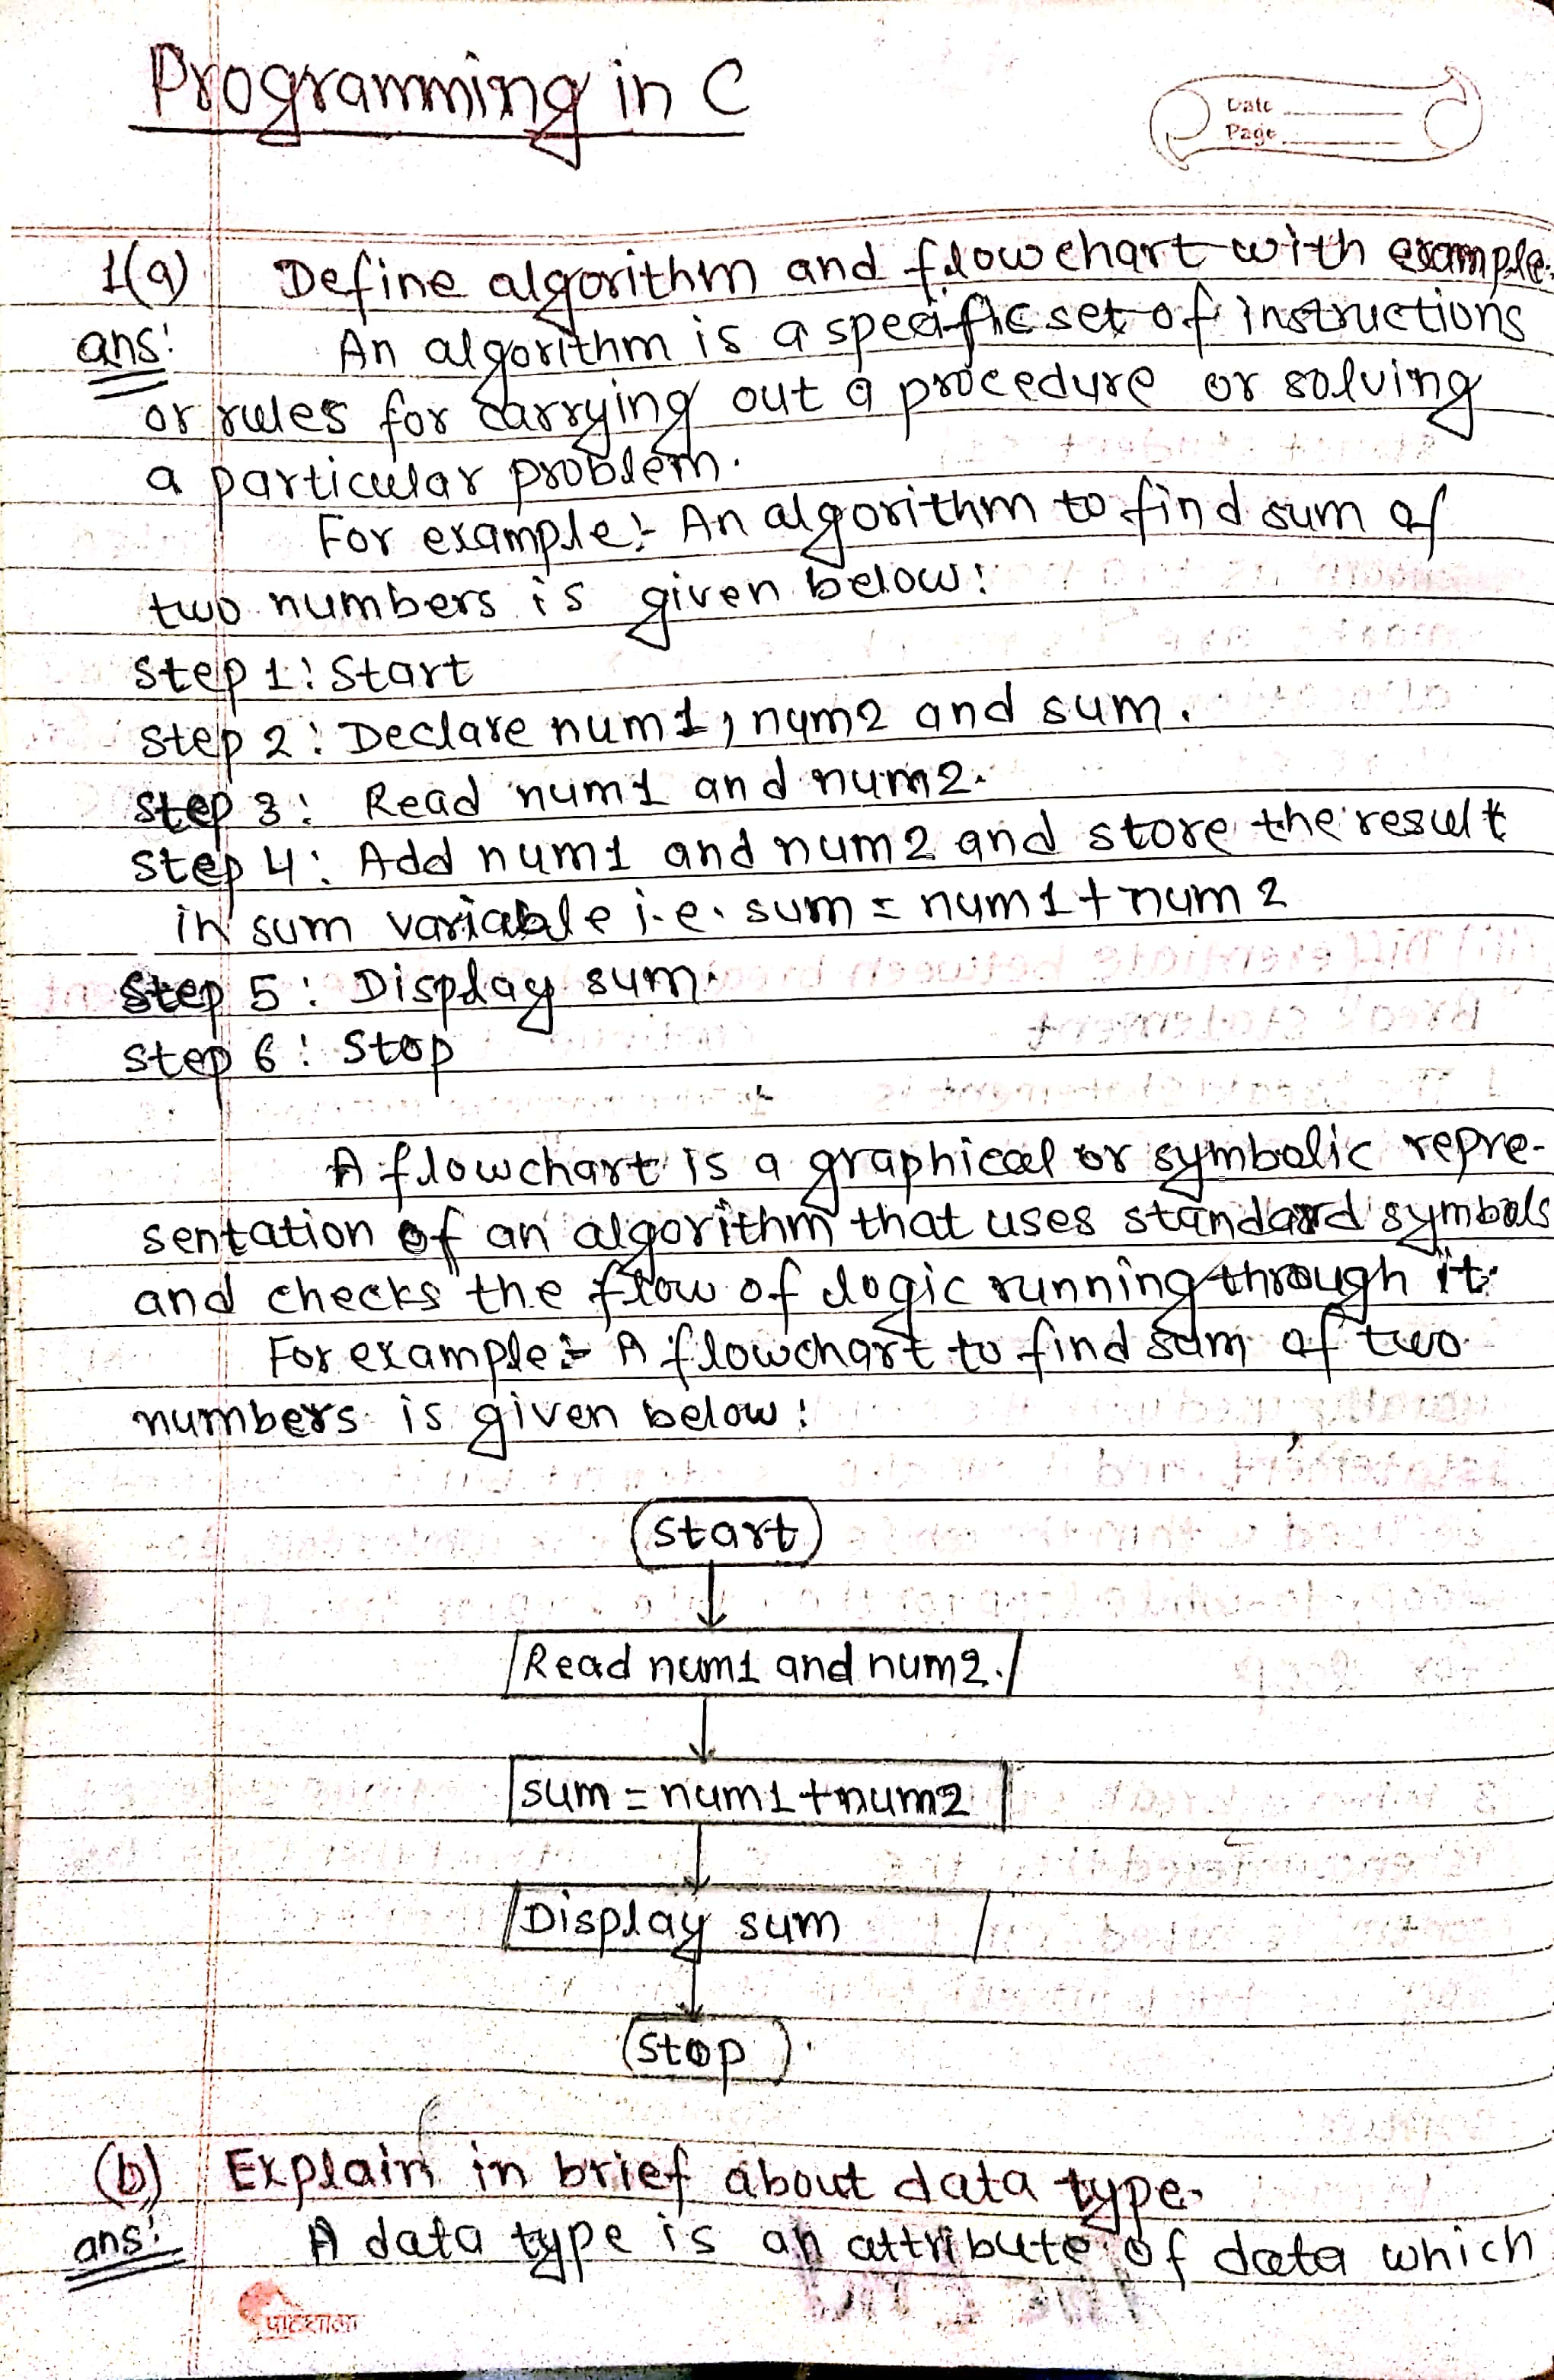 Programming in C
Date
Page
1(a) Define algorithm and flowchart with example.
ans: An algorithm is a specific set of instructions
or rules for carrying out a procedure or solving
a particular problem.
For example:- An algorithm to find sum of
two numbers is given below:
Step 1: Start
Step 2: Declare num1, num2 and sum.
Step 3: Read num1 and num2.
Step 4: Add num1 and num2 and store the result
in sum variable i.e. sum = num1+num2
Step 5: Display sum.
Step 6: Stop
A flowchart is a graphical or symbolic repre-
sentation of an algorithm that uses standard symbols
and checks the flow of logic running through it.
For example:- A flowchart to find sum of two
numbers is given below:
Start
Read num1 and num2.
sum = num1+num2
Display sum
Stop
(b) Explain in brief about data type.
ans: A data type is an attribute of data which
पाठशाला